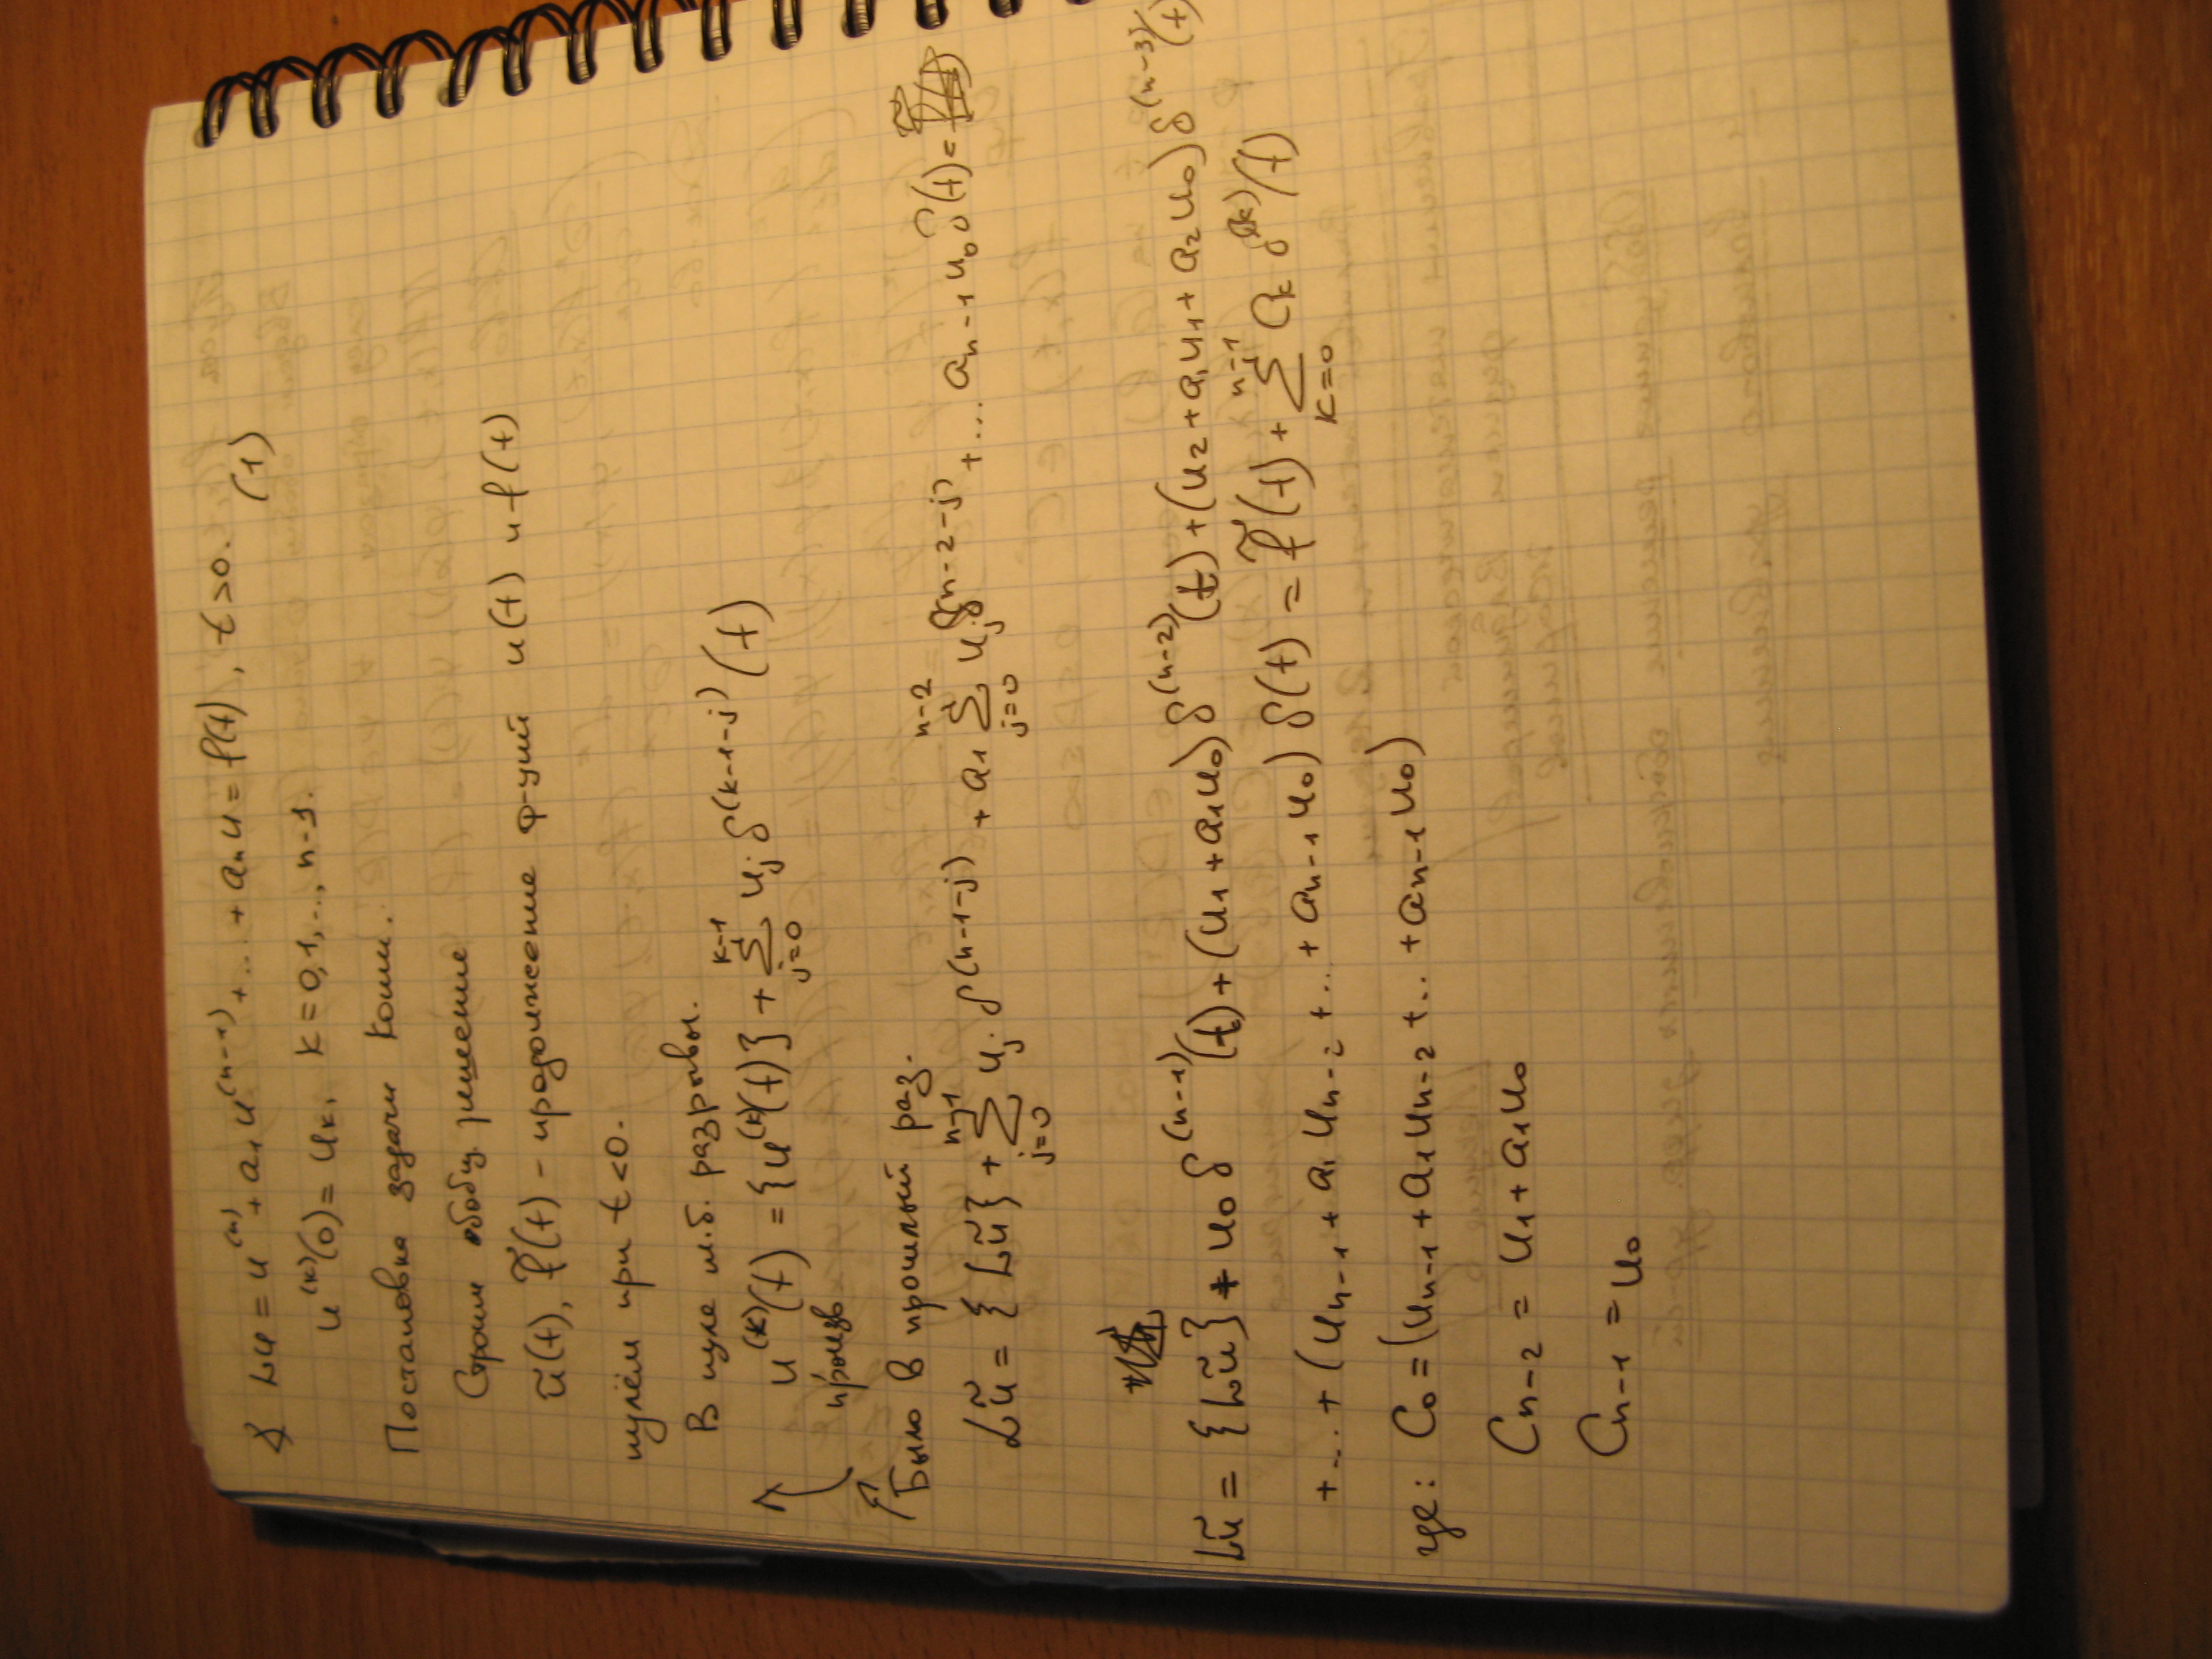 & Lu = u⁽ⁿ⁾ + a₁u⁽ⁿ⁻¹⁾ + ... + aₙu = f(t), t>0. (1)
u⁽ᵏ⁾(0) = uₖ, k = 0,1,..., n-1.
Постановка задачи Коши.
Строим обобщ. решение
ũ(t), f̃(t) - продолжение ф-уий u(t) и f(t)
нулём при t<0.
В нуле м.б. разрывы.
u⁽ᵏ⁾(t) = {u⁽ᵏ⁾(t)} + ∑_{j=0}^{k-1} u_j δ^{(k-1-j)}(t)
произв
Было в прошлый раз.
Lũ = {Lũ} + ∑_{j=0}^{n-1} u_j δ^{(n-1-j)} + a₁ ∑_{j=0}^{n-2} u_j δ^{(n-2-j)} + ... a_{n-1} u₀ δ(t) =
Lũ = {Lũ} + u₀ δ^{(n-1)}(t) + (u₁ + a₁u₀) δ^{(n-2)}(t) + (u₂ + a₁u₁ + a₂u₀) δ^{(n-3)}(t)
+ ... + (u_{n-1} + a₁ u_{n-2} + ... + a_{n-1} u₀) δ(t) = f̃(t) + ∑_{k=0}^{n-1} C_k δ^{(k)}(t)
где: C₀ = (u_{n-1} + a₁u_{n-2} + ... + a_{n-1} u₀)
C_{n-2} = u₁ + a₁u₀
C_{n-1} = u₀